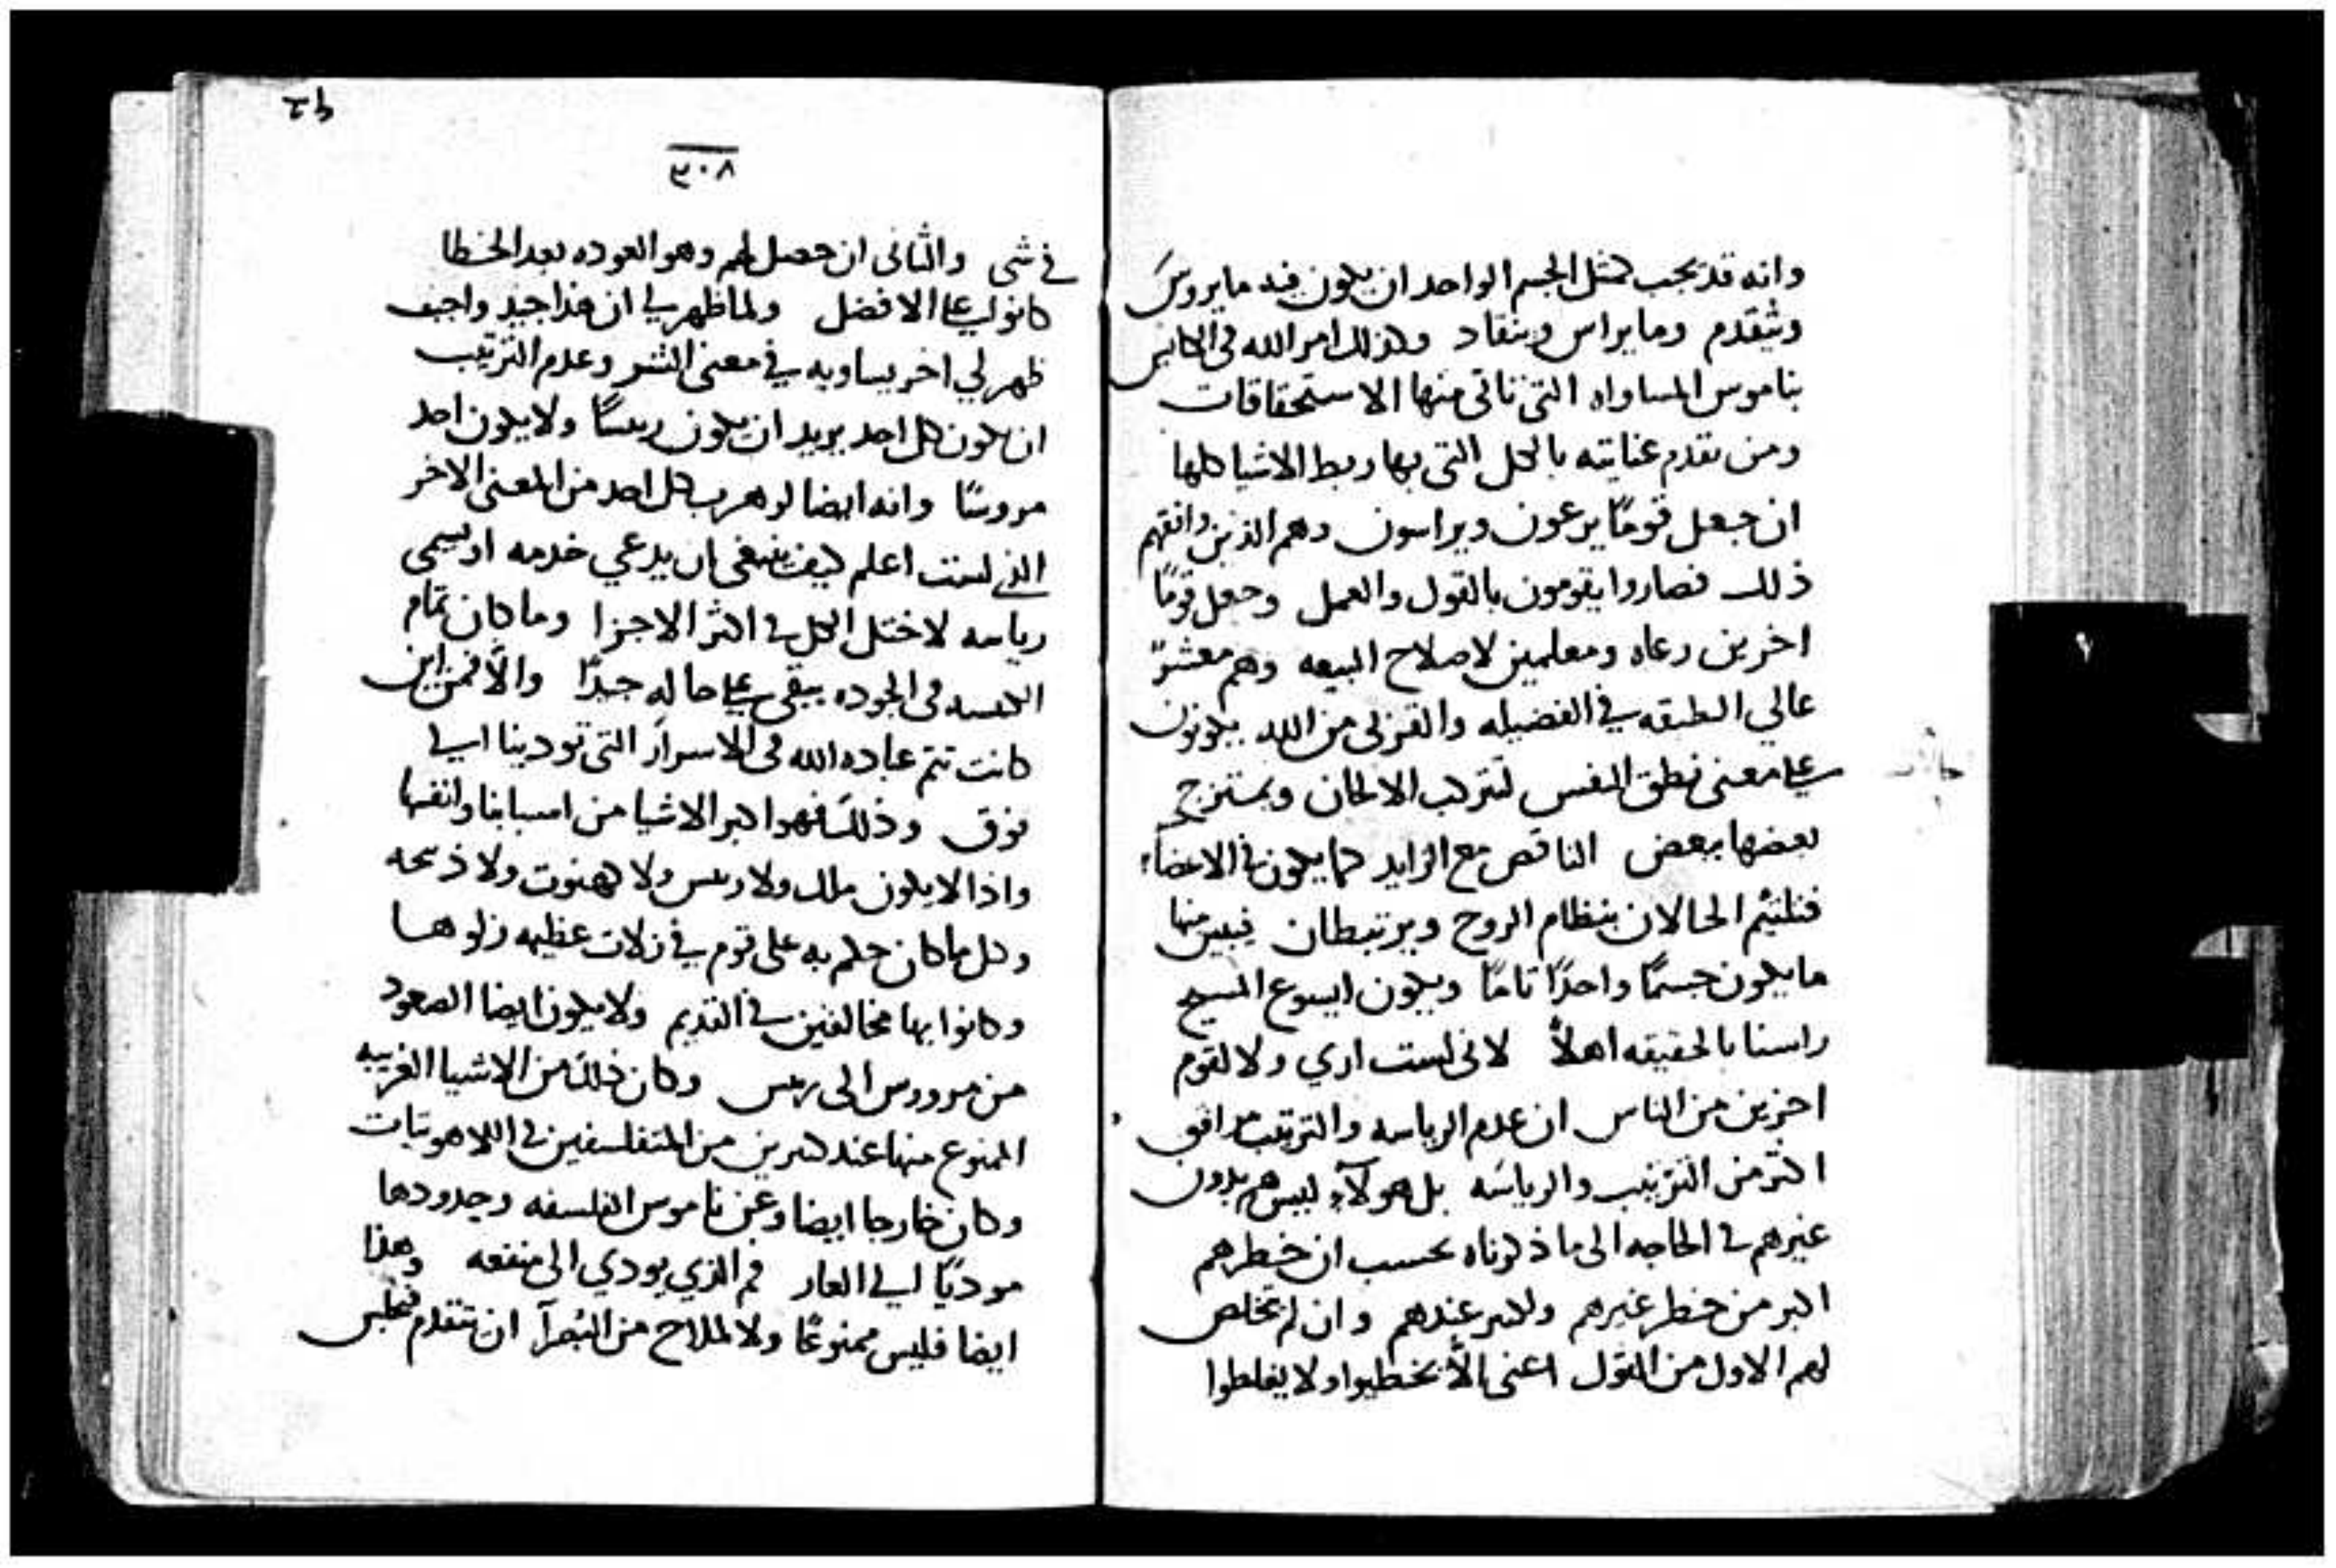 وانه قد يجب كمثل الجسم الواحد ان يكون فيه ما يروس
ويتقدم وما يراس وينقاد وكذلك امر الله في الكنايس
بناموس المساواه التي تاتي منها الاستحقاقات
ومن تقدم عنايته بالكل التي بها ربط الاشيا كلها
ان جعل قومًا يرعون ويراسون وهم الذين وافقهم
ذلك فصاروا يقومون بالقول والعمل وجعل قومًا
اخرين رعاه ومعلمين لاصلاح البيعه وهم معشرٌ
عالي الطبقه في الفضيله والقربى من الله يكونون
على معنى نطق النفس لتتركب الالحان ويمتزج
بعضها ببعض الناقص مع الزايد كما يكون في الاعضآء
فتلتيم الحالان بنظام الروح ويرتبطان فيبين منها
ما يكون جسمًا واحدًا تامًا ويكون ايسوع المسيح
راسنا بالحقيقه اهلاً لاني لست اري ولا لقوم
اخرين من الناس ان عدم الرياسه والترتيب موافق
اكثر من الترتيب والرياسه بل هولآء ليس هم بدون
غيرهم في الحاجه الى ما ذكرناه بحسب ان خطرهم
اكبر من خطر غيرهم عندهم وان لم تخلص
لهم الاول من القول اعني الاّ يخطيوا ولا يغلطوا
٣٠٨
في شي والثاني ان حصل لهم وهو العوده بعد الخطا
كانوا على الافضل ولما ظهر لي ان هذا جيد واجب
ظهر لي اخر يساويه في معنى الشر وعدم الترتيب
ان يكون كل احد يريد ان يكون ريسًا ولا يكون احد
مروسًا وانه ايضا لو هرب كل احد من المعنى الاخر
الذي لست اعلم كيف ينبغي ان يدعي خدمه او يسمى
رياسه لاختل الكل في اكثر الاجزا وما كان تمام
الكنيسه في الجوده يبقى على حاله جيدًا والاّ فمن اين
كانت تتم عباده الله في الاسرار التي تودينا الى
فوق وذلك فهو اكبر الاشيا من اسبابنا وانفسها
واذا لا يكون ملك ولا ريس ولا كهنوت ولا ذبيحه
وكل ما كان حكم به على قوم في زلات عظيمه زلوها
وكانوا بها مخالفين في القديم ولا يكون ايضا الصعود
من مرووس الى ريس وكان ذلك من الاشيا الغريبه
الممنوع منها عند كثيرين من المتفلسفين في اللاهوتيات
وكان خارجا ايضا وعن ناموس الفلسفه وحدودها
موديًا الى العار ثم الذي يودي الى منفعه وهذا
ايضا فليس ممنوعًا ولا لملاح من البُصرآ ان تتقدم فيجلس